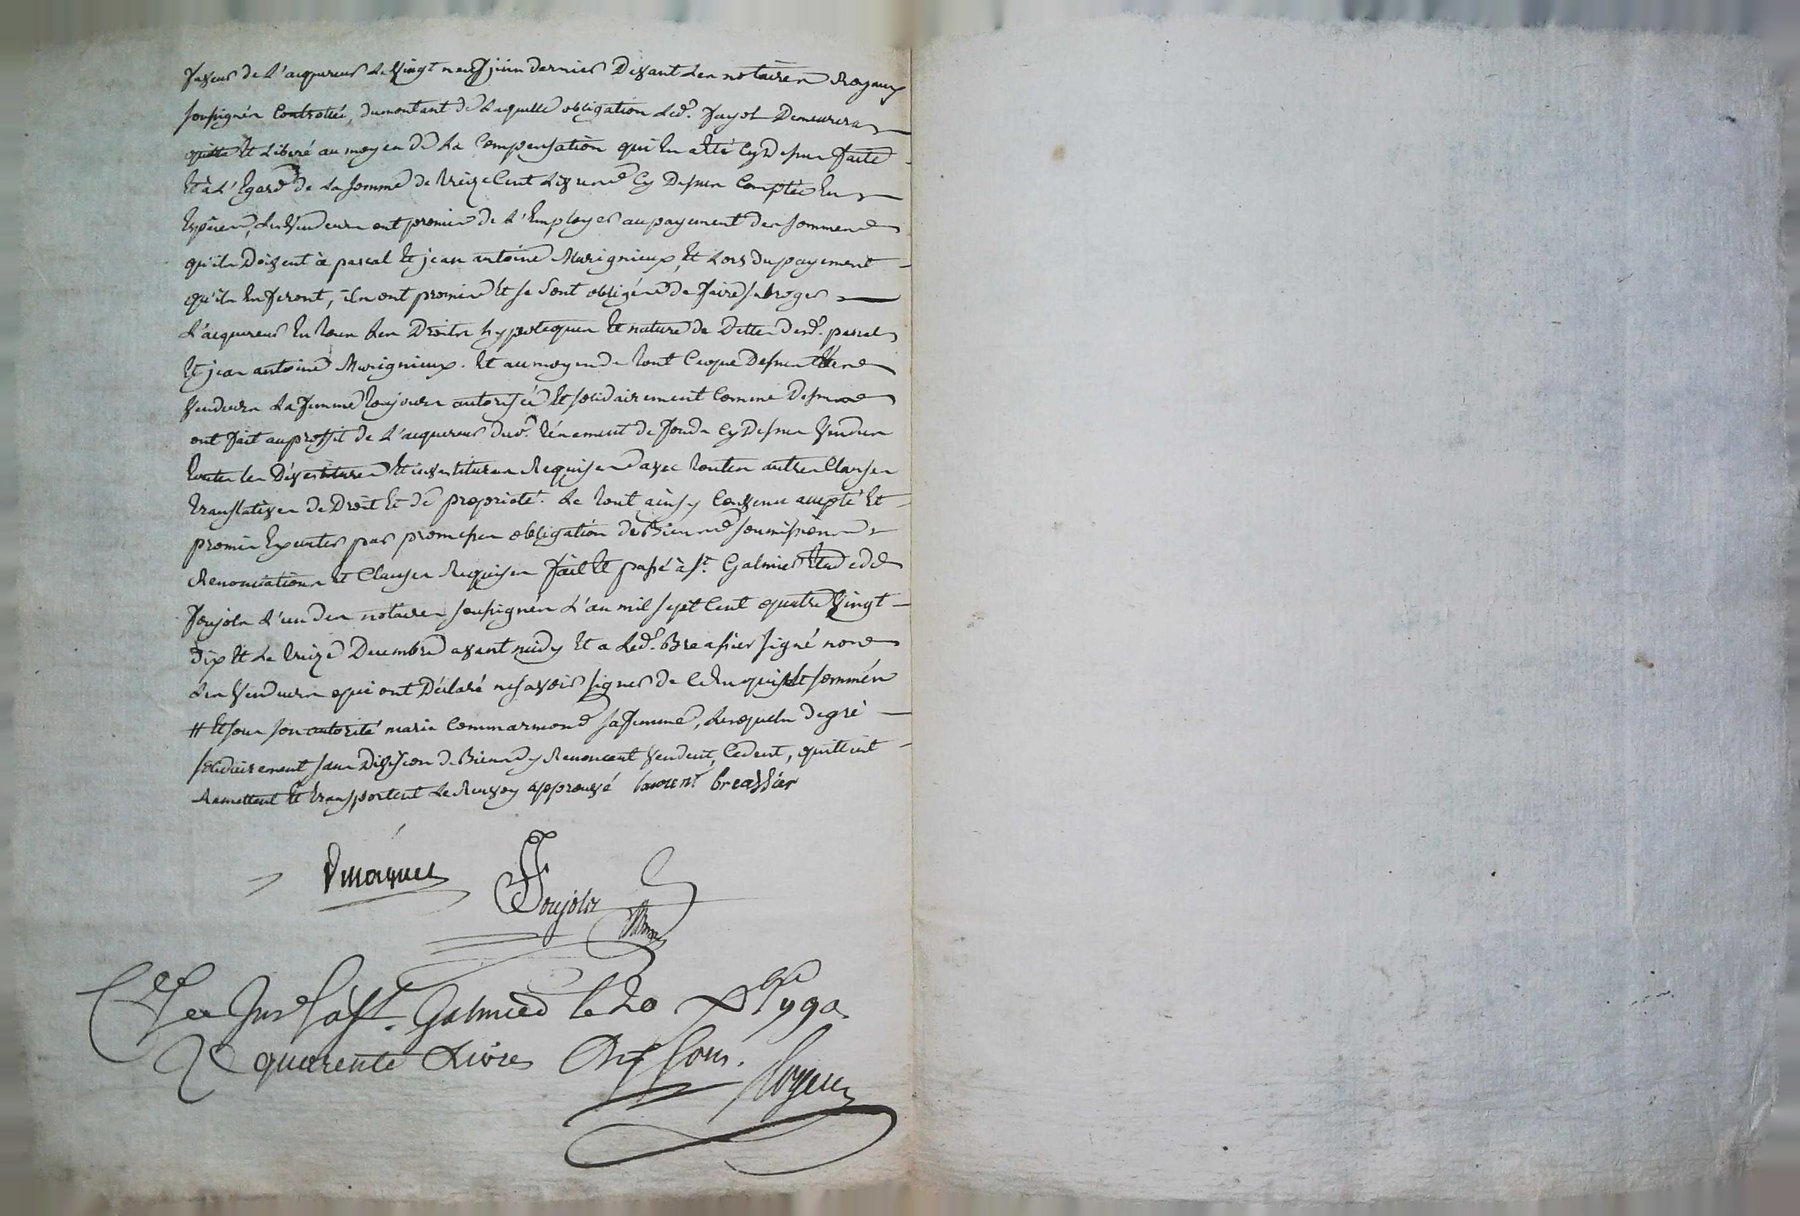 faveur de l'acquereur le vingt neuf juin dernier devant les notaires Royaux
soussignés Controllée, du montant de laquelle obligation led. fayol Demeurera
quitte et libéré au moyen de la Compensation qui en a été cy dessus faite
Et à l'Egard de la somme de treize Cent livres cy dessus Comptée En
Espèces, les Vendeurs ont promis de l'Employer au payement des sommes
qu'ils doivent à pascal Et jean antoine Marignieux, Et Lors du payement
qu'ils En feront, ils ont promis Et se sont obligés de faire subroger
L'acquereur En tous les Droits hypoteques Et nature de Dettes desd. pascal
Et jean antoine Marignieux. Et au moyen de tout Ceque dessus les
Vendeurs la femme toujours autorisée Et solidairement Comme dessus
ont fait au proffit de L'acquereur dud. ténement de fonds cy dessus Vendus
toutes les Dévestitures Et investitures Requises avec toutes autres Clauses
translatives de Droit Et de propriété. Le tout ainsy Convenu accepté Et
promis Executer par promesses obligation de Biens soumissions
Renonciations Et Clauses Requises fait Et passé à St. Galmier Etude de
foujols L'un des notaires soussignés L'an mil sept Cent quatre Vingt
Dix Et le treize Decembre avant midy Et a led. Breassier signé non
les Vendeurs qui ont Déclaré ne savoir signer de Ce Enquis Et sommés
# Et sous son autorité marie Commarmond sa femme, Lesquels de gré
solidairement sans Division de Biens y Renoncant Vendent, Cedent, quittent
Remettent Et transportent le Renvoy approuvé laurent breassier
foujols
a St. Galmier le 20 Xbre 1790.
R quarente Livres Dix sous.